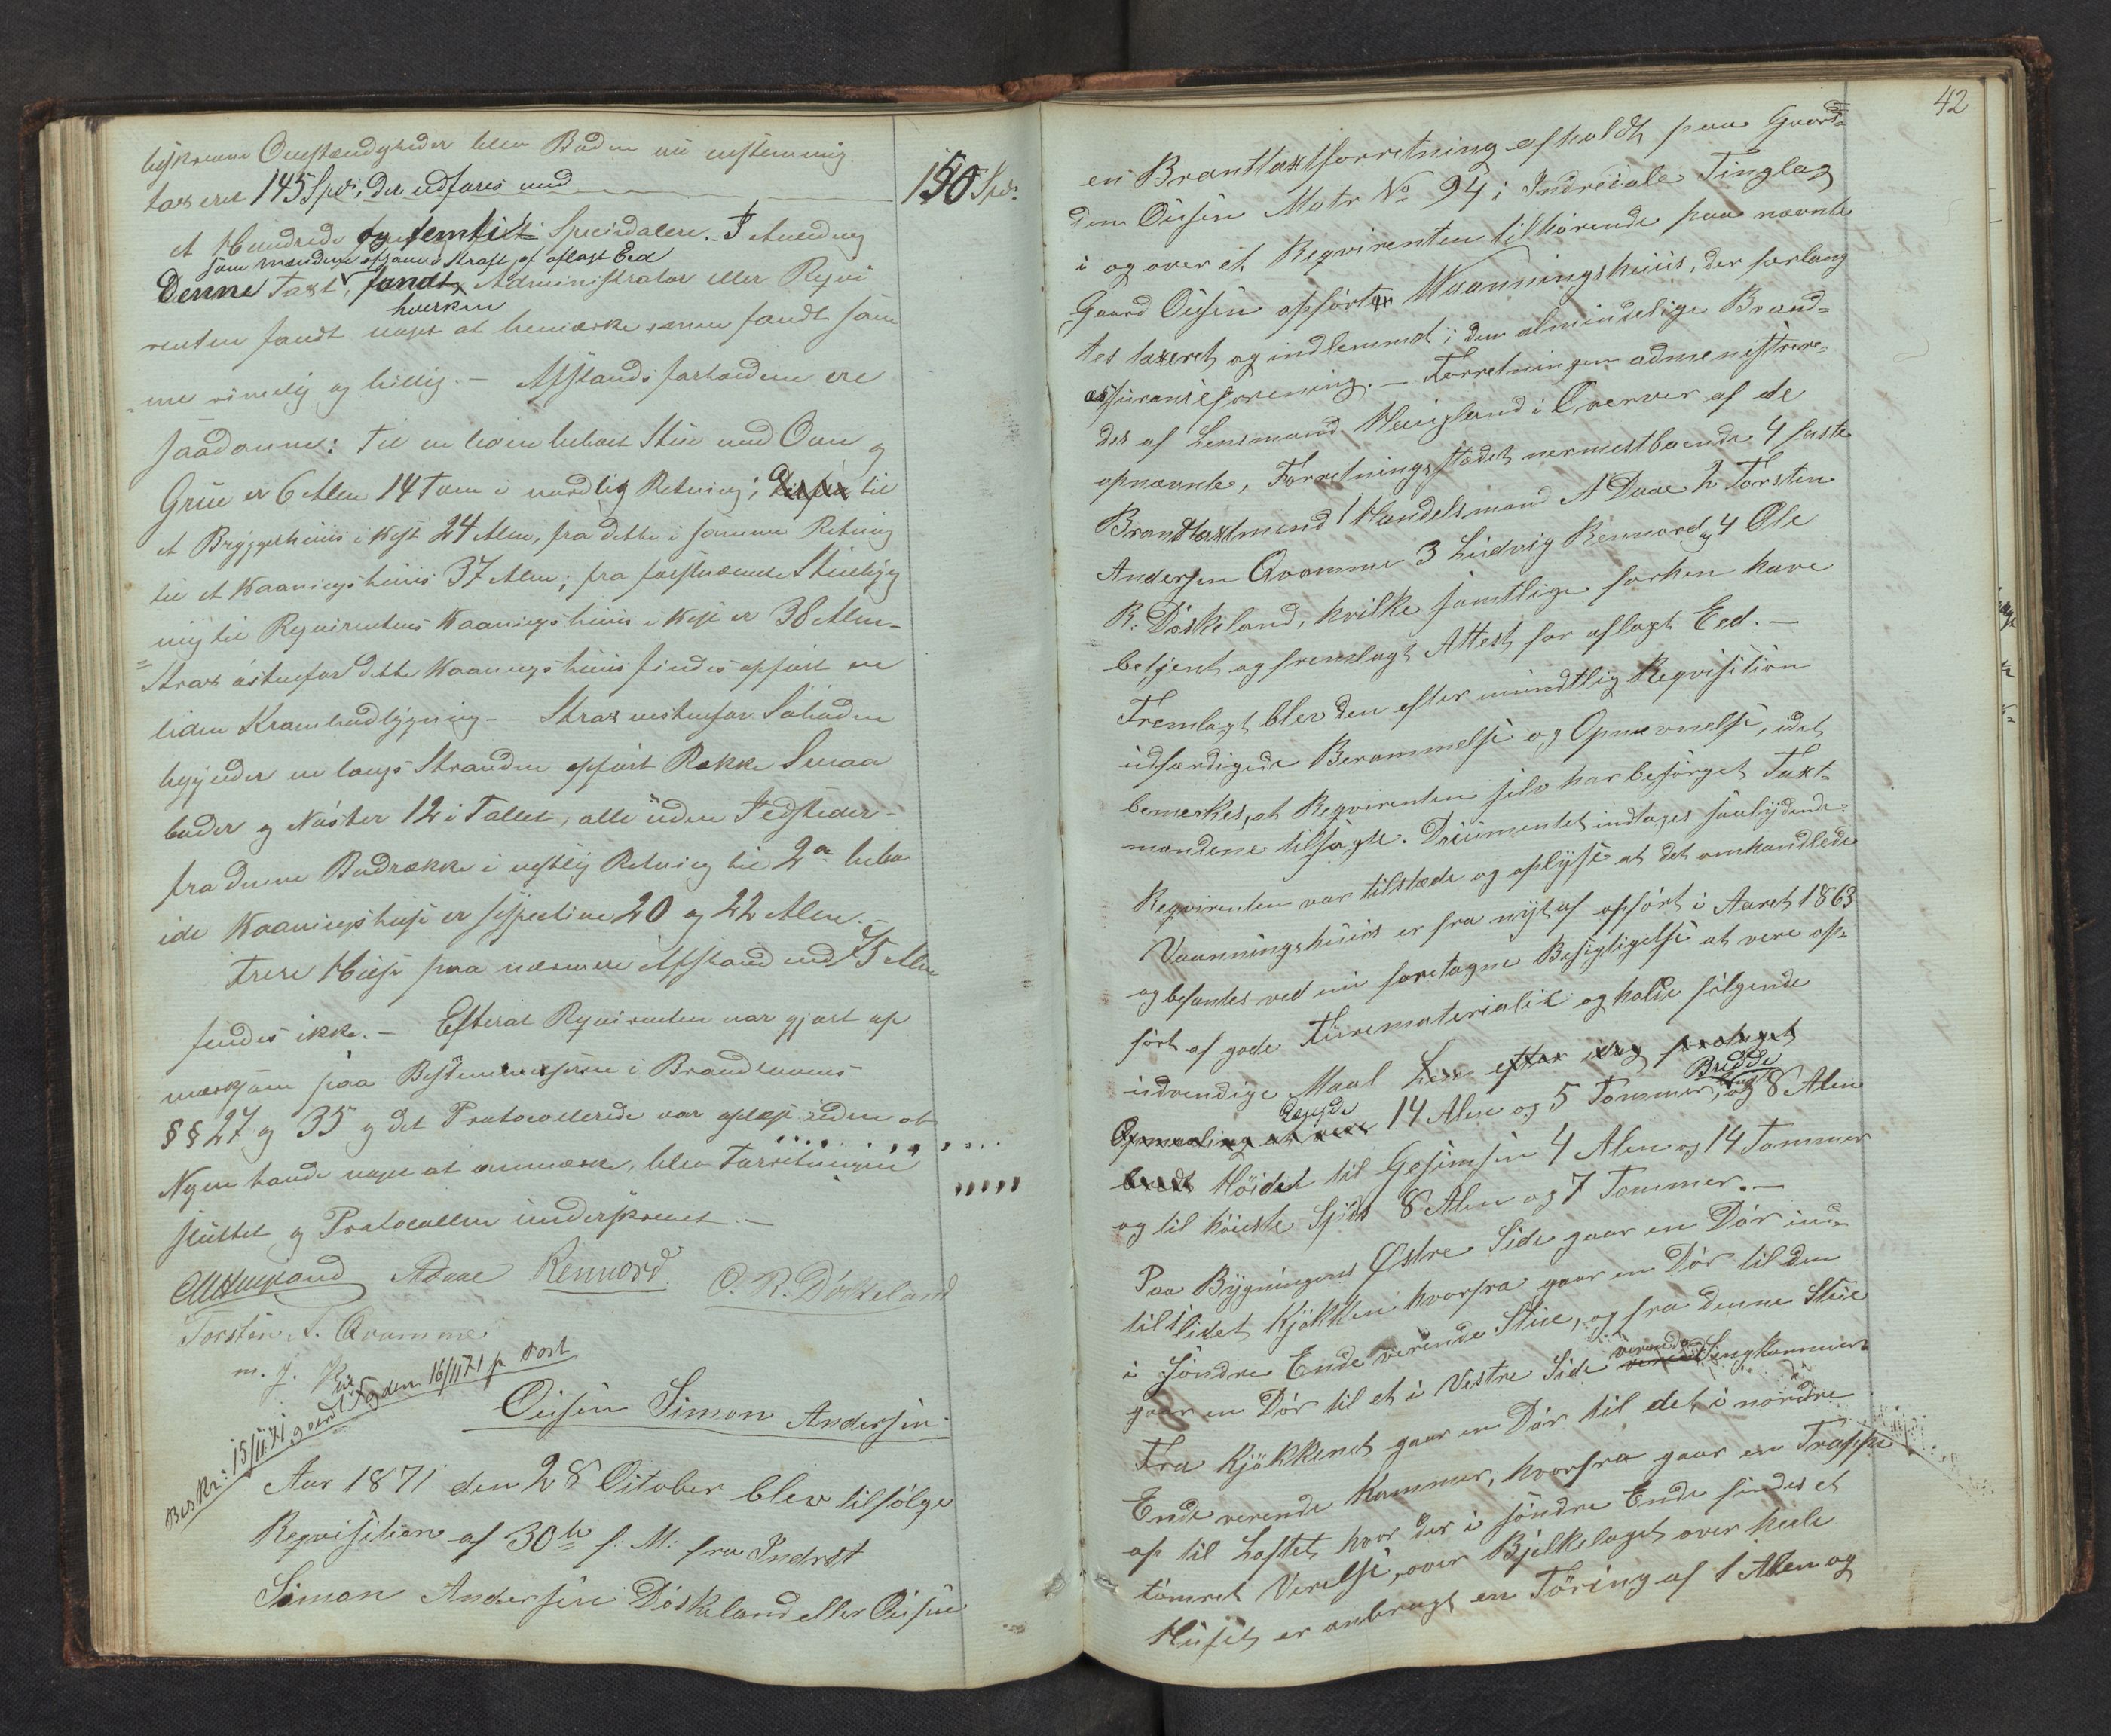 Omstændigheder blev Boden nu eenstemmig
taxeret 145 Spd., der udføres med 150 Spd.
et Hundrede og femti Speciedalere. I Anledning
som mændene afgave i Kraft af aflagt Eed
Denne Taxt, fandt, Administrator eller Reqvi
hverken
renten fandt noget at bemærke men fandt sam
me rimelig og billig. — Afstandsforholdene ere
saadanne: Til en beboet Stue med Ovn og
Grue er 6 Alen 14 Tom i nordlig Retning, til
et Bryggerhuus i Vest 24 Alen, fra dette i samme Retning
til et Vaaningshuus 37 Alen; fra førstnævnte Stuebyg
ning til Reqvirentens Vaaningshuus i Vest er 38 Alen.
Strax østenfor dette Vaaningshuus findes opført en
liden Krambodbygning. — Strax vestenfor Søboden
begynder en langs Stranden opført Række Smaa
boder og Nøster 12 i Tallet, alle uden Ildsteder.
fra denne Bodrække i vestlig Retning til 2de bebo
ede Vaaningshuse er respective 20 og 22 Alen.
Flere Huse paa nærmere Afstand end 75 Alen
findes ikke. — Efterat Reqvirenten var gjort op
mærksom paa Bestemmelserne i Brandlovens
§§ 27 og 35 og det Protocollerede var oplæst uden at
Nogen havde noget at anmærke, blev Forretningen
sluttet og Protocollen underskrevet. —
Haugland ADaae Rennord O. R. Döskeland
Torsten A. Qvamme
m. f. P.
Beskr: 15/11 71 den 16/11 71 p Post
Öisin Simon Andersen.
Aar 1871 den 28 October blev tilfølge
Reqvisition af 30te f: M: fra Inderst
Simon Andersen Döskeland eller Öisin
42
en Brandtaxtforretning afholdt paa Gaar-
den Öisin Matr No 94 i Indreviale Tinglag
i og over et Reqvirenten tilhörende paa nævnte
Gaard Öisin opfört Vaaningshuus, der forlang
tes taxeret og indlemmed i den almindelige Brand-
assuranceforening. — Forretningen administrere-
des af Lensmand Haugland i Overvær af de
opnævnte, Forretningsstedet nærmestboende 4 faste
Brandtaxtmænd 1 Handelsmand A Daae 2 Torsten
Andersen Qvamme 3 Ludvig Rennord og 4 Ole
R: Döskeland, hvilke samtlige forhen have
betjent og fremlagt Attest for aflagt Eed. —
Fremlagt blev den efter mundtlig Reqvisition
udfærdigede Berammelse og Opnævnelse, idet
bemerkes, at Reqvirenten selv har besörget Taxt-
mændene tilsagte. Documentet indtages saalydende:
Reqvirenten var tilstede og oplyste at det omhandlede
Vaaningshuus er fra nyt af opfört i Aaret 1863
og befantes ved nu foretagne Besigtigelse at være op-
fört af gode Furematerialie og holde fölgende
udvendige Maal Her efter idag foretaget
Opmaaling at være Længde 14 Alen og 5 Tommer, Bredde 8 Alen
bredt Höiden til Gesimsen 4 Alen og 14 Tommer
og til höieste Spids 8 Alen og 7 Tommer. —
Paa Bygningens Østre Side gaar en Dör ind
til 1 lidet Kjökken hvorfra gaar en Dör til den
i söndre Ende værende Stue, og fra denne Stue
gaar en Dör til et i Vestre Side værende Sengkammer
Fra Kjökkenet gaar en Dör til det i nordre
Ende værende Kammer, hvorfra gaar en Trappe
op til Loftet, hvor der i söndre Ende findes et
tömret Værelse, over Bjelkelaget over hele
Huset er anbragt en Töring af 1 Alen og